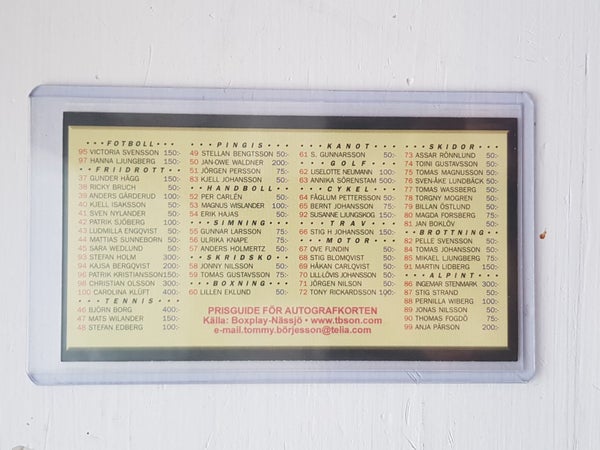 • • • FOTBOLL • • •
95 VICTORIA SVENSSON 150:-
97 HANNA LJUNGBERG 150:-
• • FRIIDROTT • •
37 GUNDER HÄGG 150:-
38 RICKY BRUCH 50:-
39 ANDERS GÄRDERUD 100:-
40 KJELL ISAKSSON 50:-
41 SVEN NYLANDER 50:-
42 PATRIK SJÖBERG 100:-
43 LUDMILLA ENGQVIST 50:-
44 MATTIAS SUNNEBORN 50:-
45 SARA WEDLUND 50:-
93 STEFAN HOLM 300:-
94 KAJSA BERGQVIST 200:-
96 PATRIK KRISTIANSSON 150:-
98 CHRISTIAN OLSSON 300:-
100 CAROLINA KLÜFT 400:-
• • • TENNIS • • •
46 BJÖRN BORG 400:-
47 MATS WILANDER 150:-
48 STEFAN EDBERG 100:-
• • • PINGIS • • •
49 STELLAN BENGTSSON 50:-
50 JAN-OVE WALDNER 200:-
51 JÖRGEN PERSSON 75:-
83 KJELL JOHANSSON 50:-
• • HANDBOLL • •
52 PER CARLÉN 50:-
53 MAGNUS WISLANDER 100:-
54 ERIK HAJAS 50:-
• • • SIMNING • • •
55 GUNNAR LARSSON 75:-
56 ULRIKA KNAPE 75:-
57 ANDERS HOLMERTZ 50:-
• • SKRIDSKO • •
58 JONNY NILSSON 50:-
59 TOMAS GUSTAVSSON 75:-
• • • BOXNING • • •
60 LILLEN EKLUND 50:-
• • • KANOT • • •
61 S. GUNNARSSON 50:-
• • • GOLF • • •
62 LISELOTTE NEUMANN 100:-
63 ANNIKA SÖRENSTAM 500:-
• • • CYKEL • • •
64 FÅGLUM PETTERSSON 50:-
65 BERNT JOHANSSON 75:-
92 SUSANNE LJUNGSKOG 150:-
• • • TRAV • • •
66 STIG H JOHANSSON 150:-
• • • MOTOR • • •
67 OVE FUNDIN 50:-
68 STIG BLOMQVIST 50:-
69 HÅKAN CARLQVIST 50:-
70 LILLÖVIS JOHANSSON 50:-
71 JÖRGEN NILSON 50:-
72 TONY RICKARDSSON 100:-
• • • SKIDOR • • •
73 ASSAR RÖNNLUND 50:-
74 TOINI GUSTAVSSON 50:-
75 TOMAS MAGNUSSON 50:-
76 SVEN-ÅKE LUNDBÄCK 50:-
77 TOMAS WASSBERG 50:-
78 TORGNY MOGREN 50:-
79 BILLAN ÖSTLUND 50:-
80 MAGDA FORSBERG 75:-
81 JAN BOKLÖV 50:-
• • BROTTNING • •
82 PELLE SVENSSON 50:-
84 TOMAS JOHANSSON 50:-
85 MIKAEL LJUNGBERG 75:-
91 MARTIN LIDBERG 75:-
• • • ALPINT • • •
86 INGEMAR STENMARK 300:-
87 STIG STRAND 50:-
88 PERNILLA WIBERG 100:-
89 JONAS NILSSON 50:-
90 THOMAS FOGDÖ 75:-
99 ANJA PÄRSON 200:-
PRISGUIDE FÖR AUTOGRAFKORTEN
Källa: Boxplay-Nässjö • www.tbson.com
e-mail.tommy.börjesson@telia.com